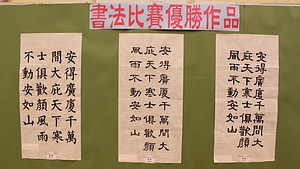 書法比賽優勝作品
安得廣廈千萬間大
庇天下寒士俱歡顏
風雨不動安如山
安得廣廈千萬間大
庇天下寒士俱歡顏
風雨不動安如山
安得廣廈千萬
間大庇天下寒
士俱歡顏風雨
不動安如山